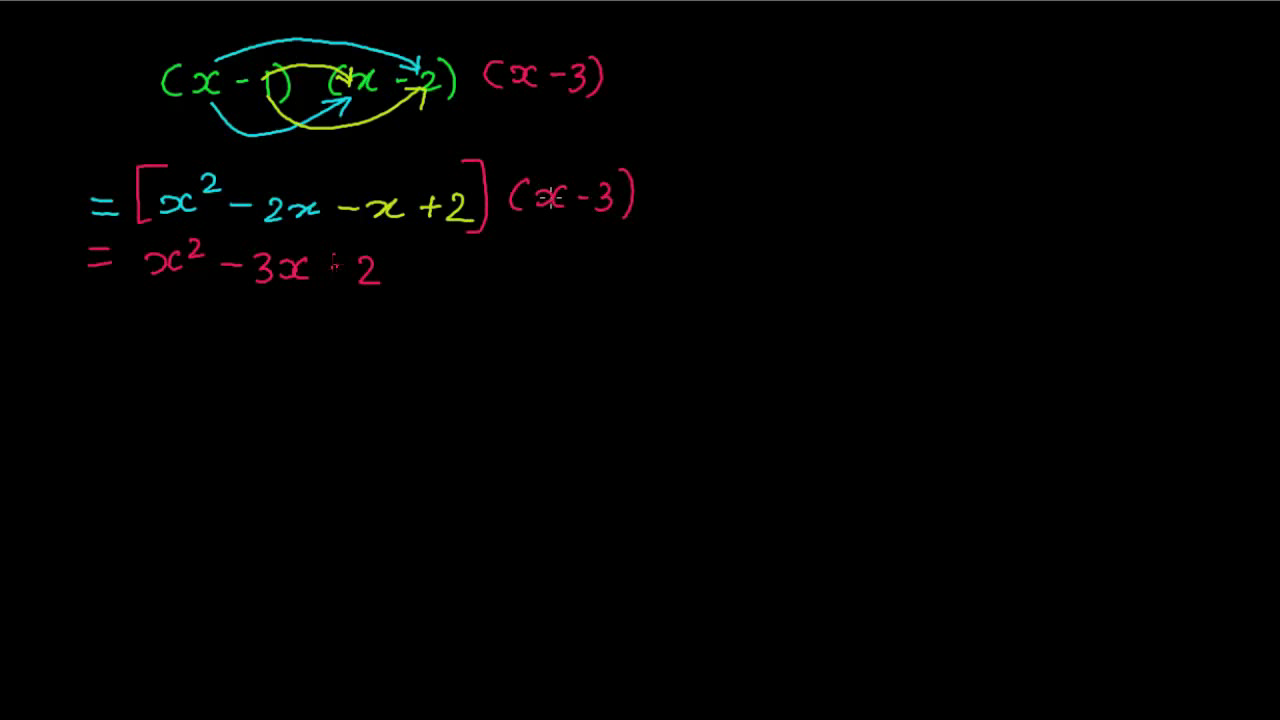 (x - 1) (x - 2) (x - 3)
= [x² - 2x - x + 2] (x - 3)
= x² - 3x + 2